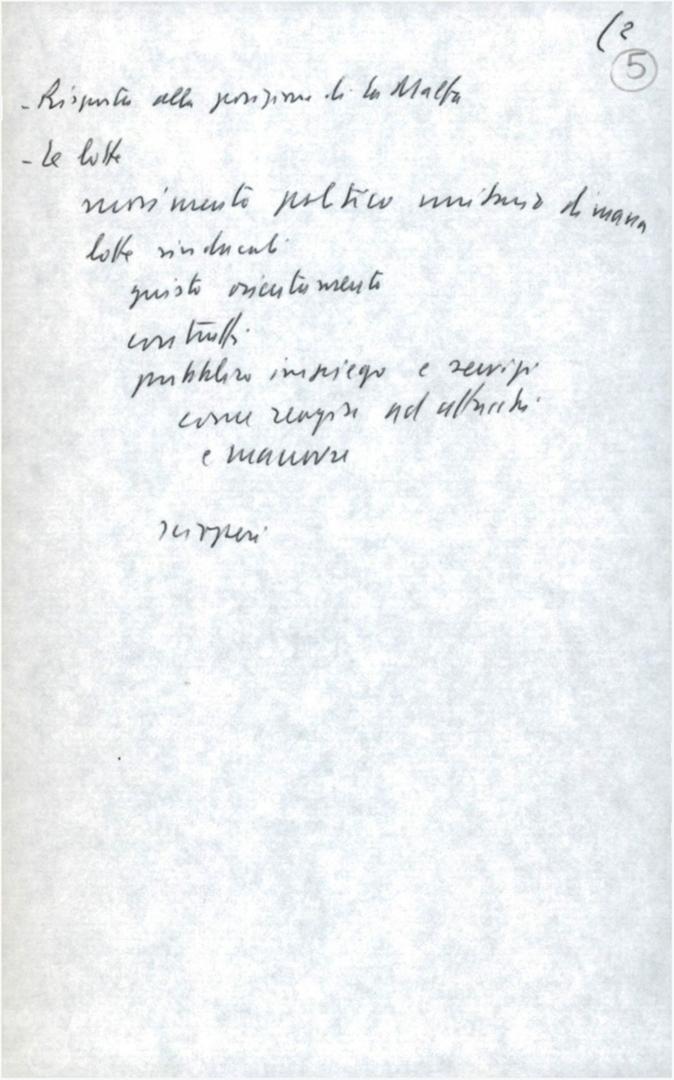 (2
5
- Risposta alla posizione di La Malfa
- Le lotte
movimento politico unitario di massa
lotte sindacali
giusto orientamento
contratti
pubblico impiego e servizi
come reagire ad attacchi
e manovre
scioperi